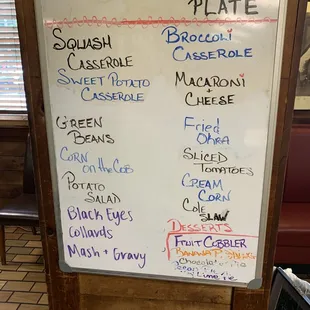 PLATE
SQUASH
CASSEROLE
SWEET POTATO
CASSEROLE
GREEN
BEANS
CORN
ON THE COB
POTATO
SALAD
BLACK EYES
COLLARDS
MASH + GRAVY
BROCCOLI
CASSEROLE
MACARONI
+
CHEESE
Fried
OKRA
SLICED
TOMATOES
CREAM
CORN
Cole
SLAW
DESSERTS
FRUIT COBBLER
BANANA
Chocolate